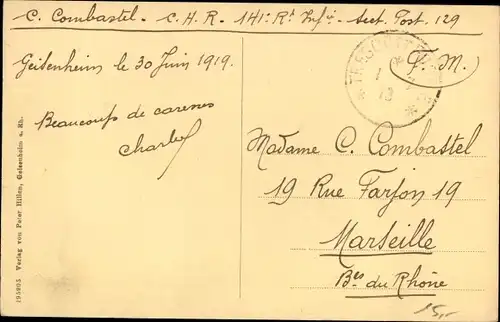 C. Combastel - C. H. R - 141e Rt Infie - Sect. Post. 129
Geisenheim le 30 Juin 1919.
F. M.
Beaucoup de caresses
Charles
TRÉSOR ET POSTES
Madame C. Combastel
19 Rue Farjon 19
Marseille
Bes du Rhône
15,-
195805 Verlag von Peter Hillen, Geisenheim a. Rh.